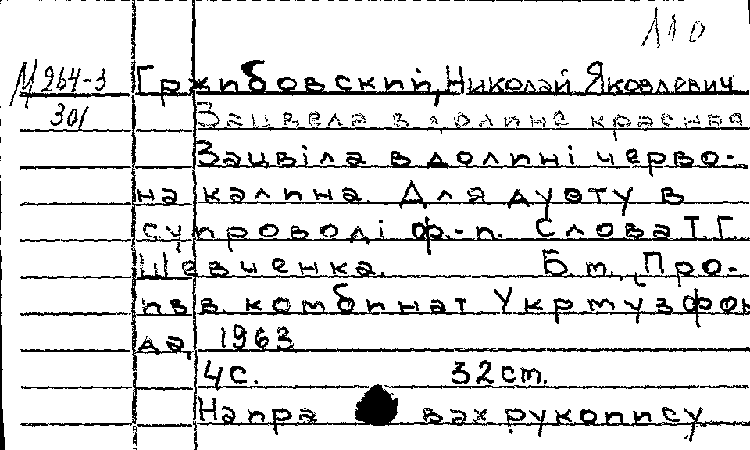 110
М264-3 Гржибовский, Николай Яковлевич
301 Зацвела в долине красная
Зацвіла в долині черво-
на калина. Для дуэту в
супроводі ф.-п. Слова Т.Г.
Шевченка. Б.м., Про-
пвв. комбинат Укрмузфон
да, 1963
4с. 32ст.
На пра вах рукопису